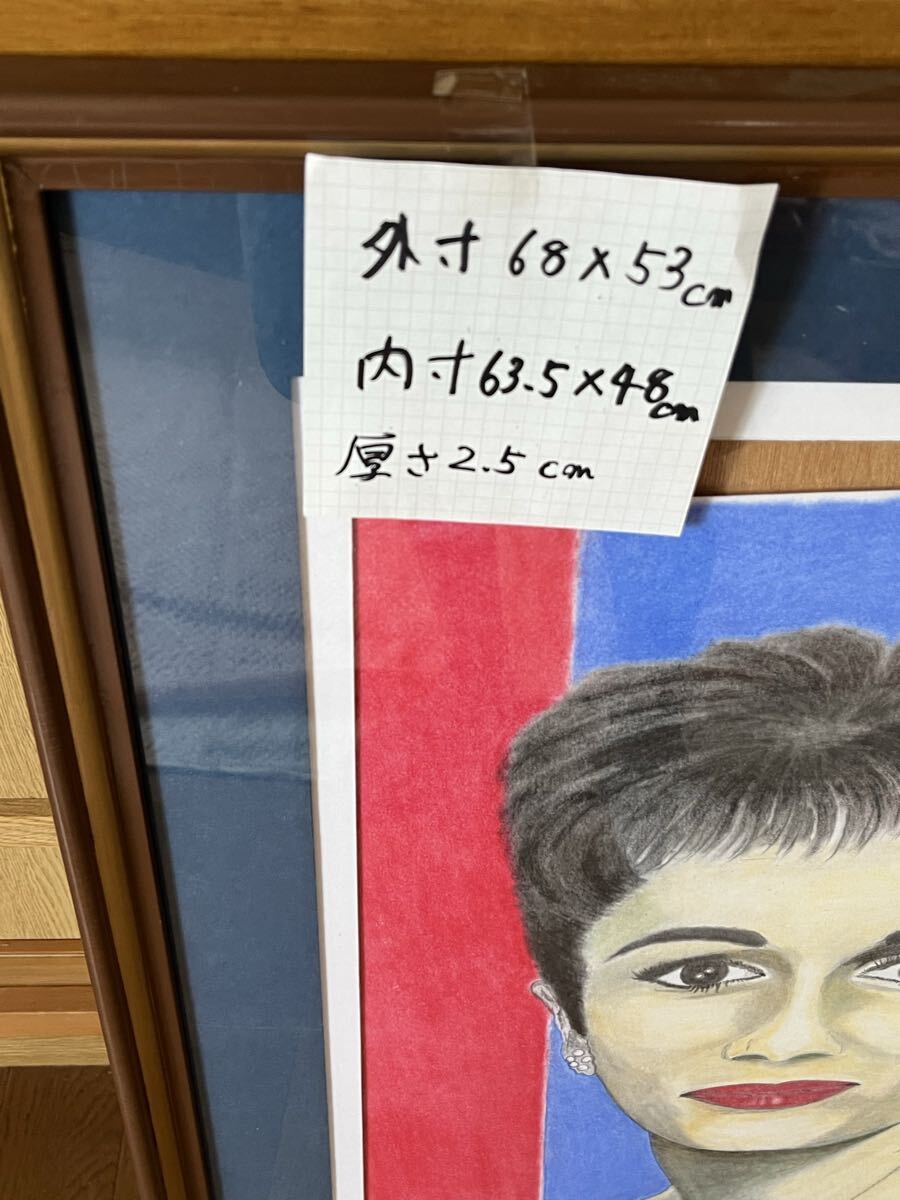 外寸 68×53cm
内寸63.5×48cm
厚さ2.5cm